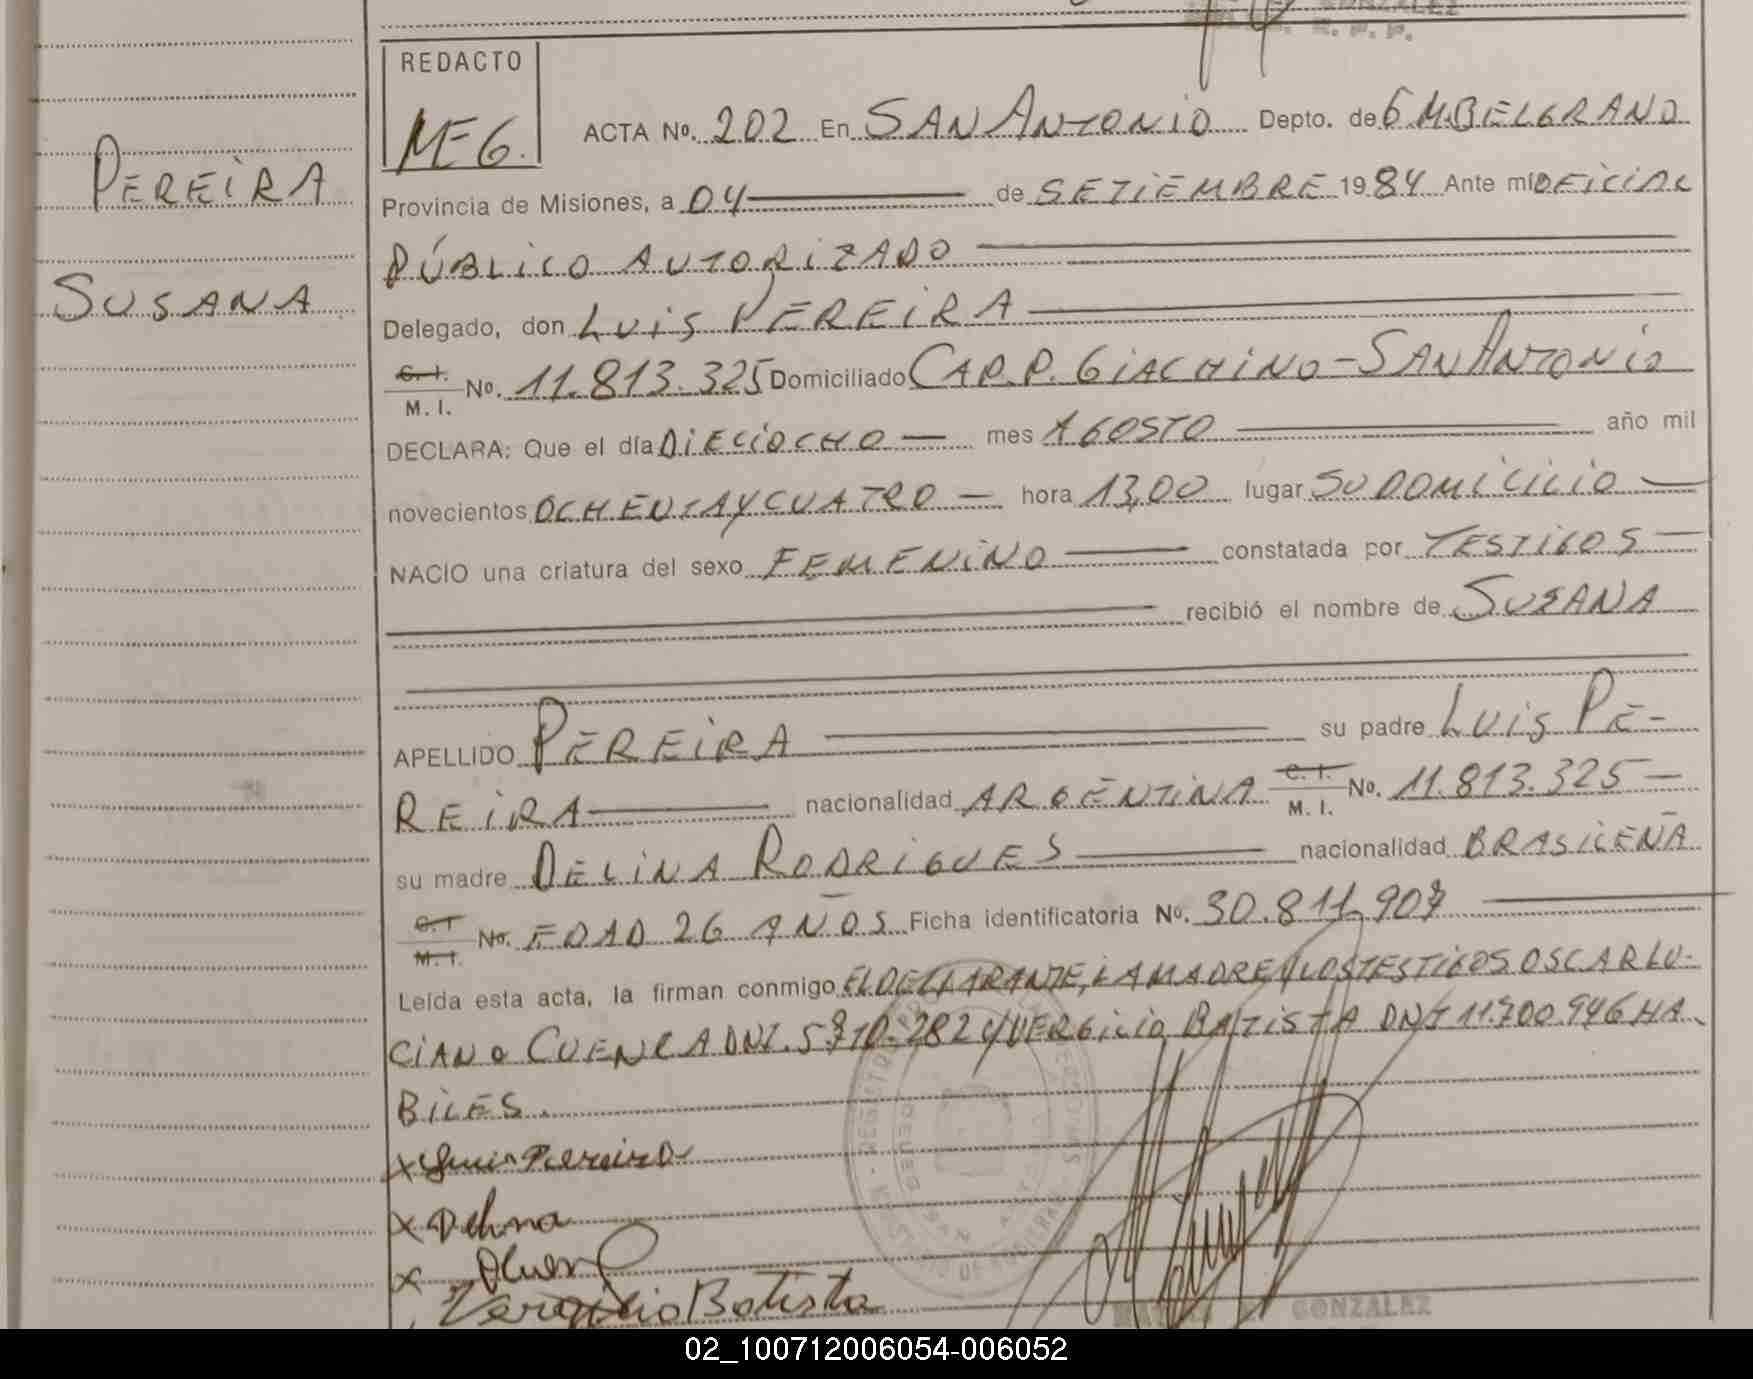 GONZALEZ
R. P. P.
REDACTO
MEG.
ACTA No. 202 En SAN ANTONIO Depto. de G M. BELGRANO
PEREIRA
Provincia de Misiones, a 04 de SETIEMBRE 1984 Ante mí OFICIAL
PÚBLICO AUTORIZADO
SUSANA
Delegado, don LUIS PEREIRA
C. I.
M. I. No. 11.813.325 Domiciliado CAP. P. GIACHINO - SAN ANTONIO
DECLARA: Que el día DIECIOCHO mes AGOSTO año mil
novecientos OCHENTA Y CUATRO hora 13,00 lugar SU DOMICILIO
NACIO una criatura del sexo FEMENINO constatada por TESTIGOS
recibió el nombre de SUSANA
APELLIDO PEREIRA su padre LUIS PE-
REIRA nacionalidad ARGENTINA C. I. M. I. No. 11.813.325
su madre DELINA RODRIGUES nacionalidad BRASILEÑA
C. I M. I. No. EDAD 26 AÑOS Ficha identificatoria No. 30.811.907
Leída esta acta, la firman conmigo EL DECLARANTE, LA MADRE Y LOS TESTIGOS OSCAR LU-
CIANO CUENCA DNI. 5.710.282 Y VERGILIO BATISTA DNI 11.700.946 HA
BILES.
x Luis Pereira
x Delina
x
Vergilio Batista
GONZALEZ
02_100712006054-006052